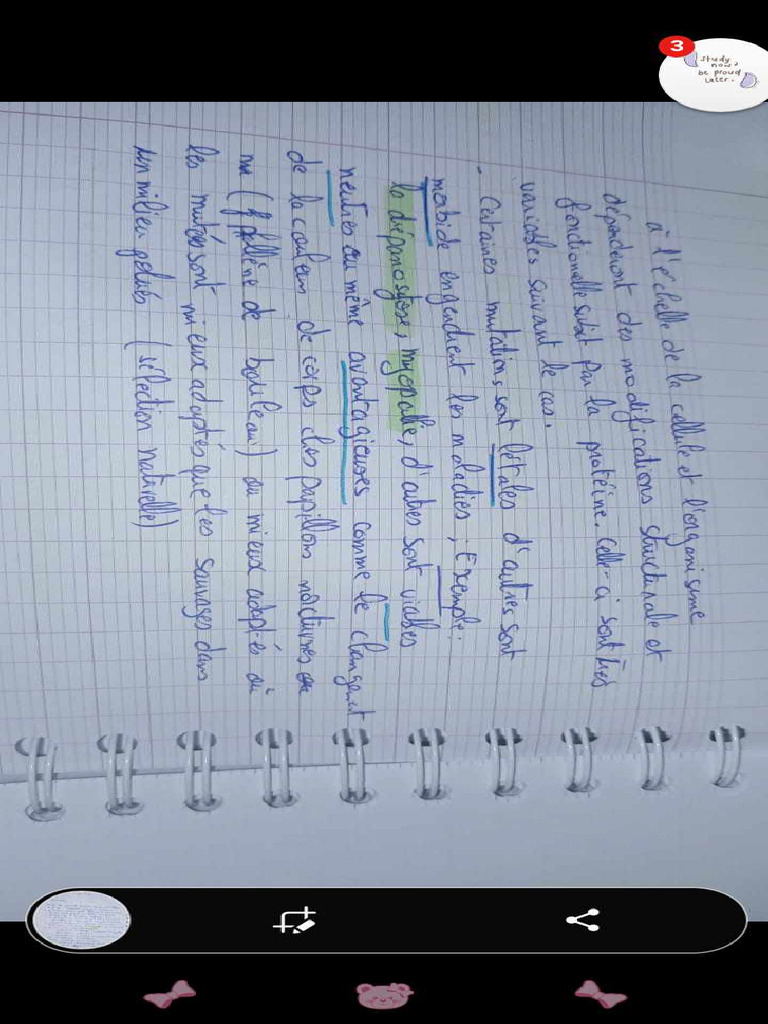 3
study now, be proud later.
à l'échelle de la cellule et l'organisme
dépenderont des modifications structurale et
fonctionelle subit par la protéine. Celle-ci sont très
variables suivant le cas.
- Certaines mutations sont létales d'autres sont
morbide engendrent les maladies ; Exemple :
la drépanocytose, myopathie, d'autres sont viables
neutres ou même avantagieuses comme le changement
de la couleur de corps des papillons noctures ou
(phalène de bouleau) ou mieux adaptés où
les mutés sont mieux adaptés que les sauvages dans
un milieu polués (sélection naturelle)